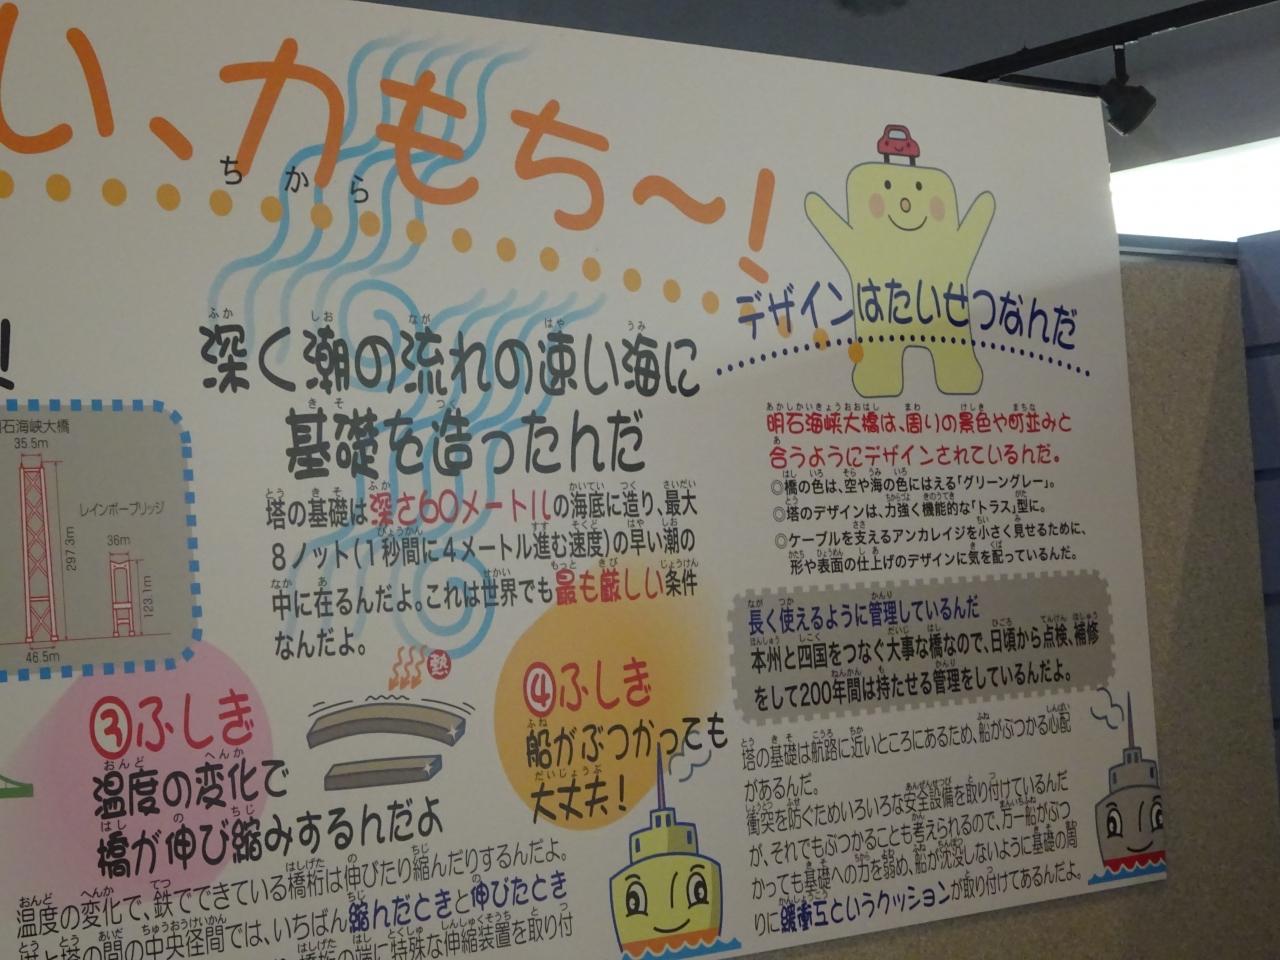 い、力もち〜!
ちから
深く潮の流れの速い海に
基礎を造ったんだ
塔の基礎は深さ60メートルの海底に造り、最大
8ノット(1秒間に4メートル進む速度)の早い潮の
中に在るんだよ。これは世界でも最も厳しい条件
なんだよ。
石海峡大橋
35.5m
297.3m
46.5m
レインボーブリッジ
36m
123.1m
③ふしぎ
温度の変化で
橋が伸び縮みするんだよ
熱
温度の変化で、鉄でできている橋桁は伸びたり縮んだりするんだよ。
塔と塔の間の中央径間では、いちばん縮んだときと伸びたとき
橋桁の端に特殊な伸縮装置を取り付
④ふしぎ
船がぶつかっても
大丈夫!
デザインはたいせつなんだ
明石海峡大橋は、周りの景色や町並みと
合うようにデザインされているんだ。
◎橋の色は、空や海の色にはえる「グリーングレー」。
◎塔のデザインは、力強く機能的な「トラス」型に。
◎ケーブルを支えるアンカレイジを小さく見せるために、
形や表面の仕上げのデザインに気を配っているんだ。
長く使えるように管理しているんだ
本州と四国をつなぐ大事な橋なので、日頃から点検、補修
をして200年間は持たせる管理をしているんだよ。
塔の基礎は航路に近いところにあるため、船がぶつかる心配
があるんだ。
衝突を防ぐためいろいろな安全設備を取り付けているんだ
が、それでもぶつかることも考えられるので、万一船がぶつ
かっても基礎への力を弱め、船が沈没しないように基礎の周
りに緩衝工というクッションが取り付けてあるんだよ。